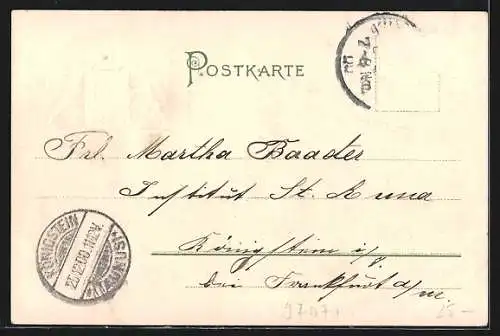 POSTKARTE
Frl. Martha Baader
Institut St. Anna
Königstein i/
bei Frankfurt a/m.
KÖNIGSTEIN
(TAUNUS)
25 —